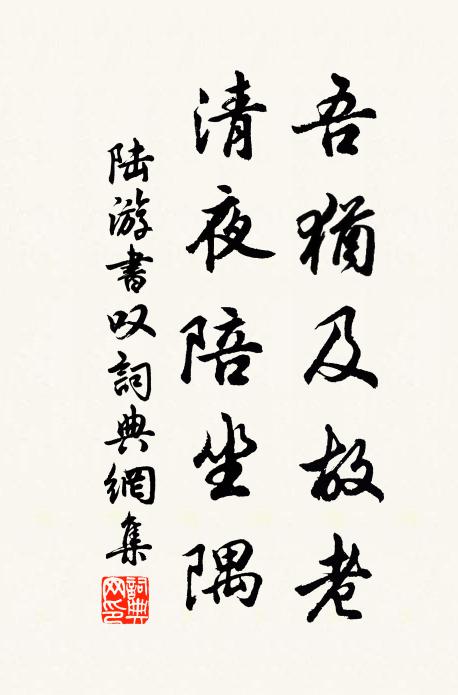 吾猶及故老
清夜陪坐隅
陆游書叹詞典網集
詞典网印